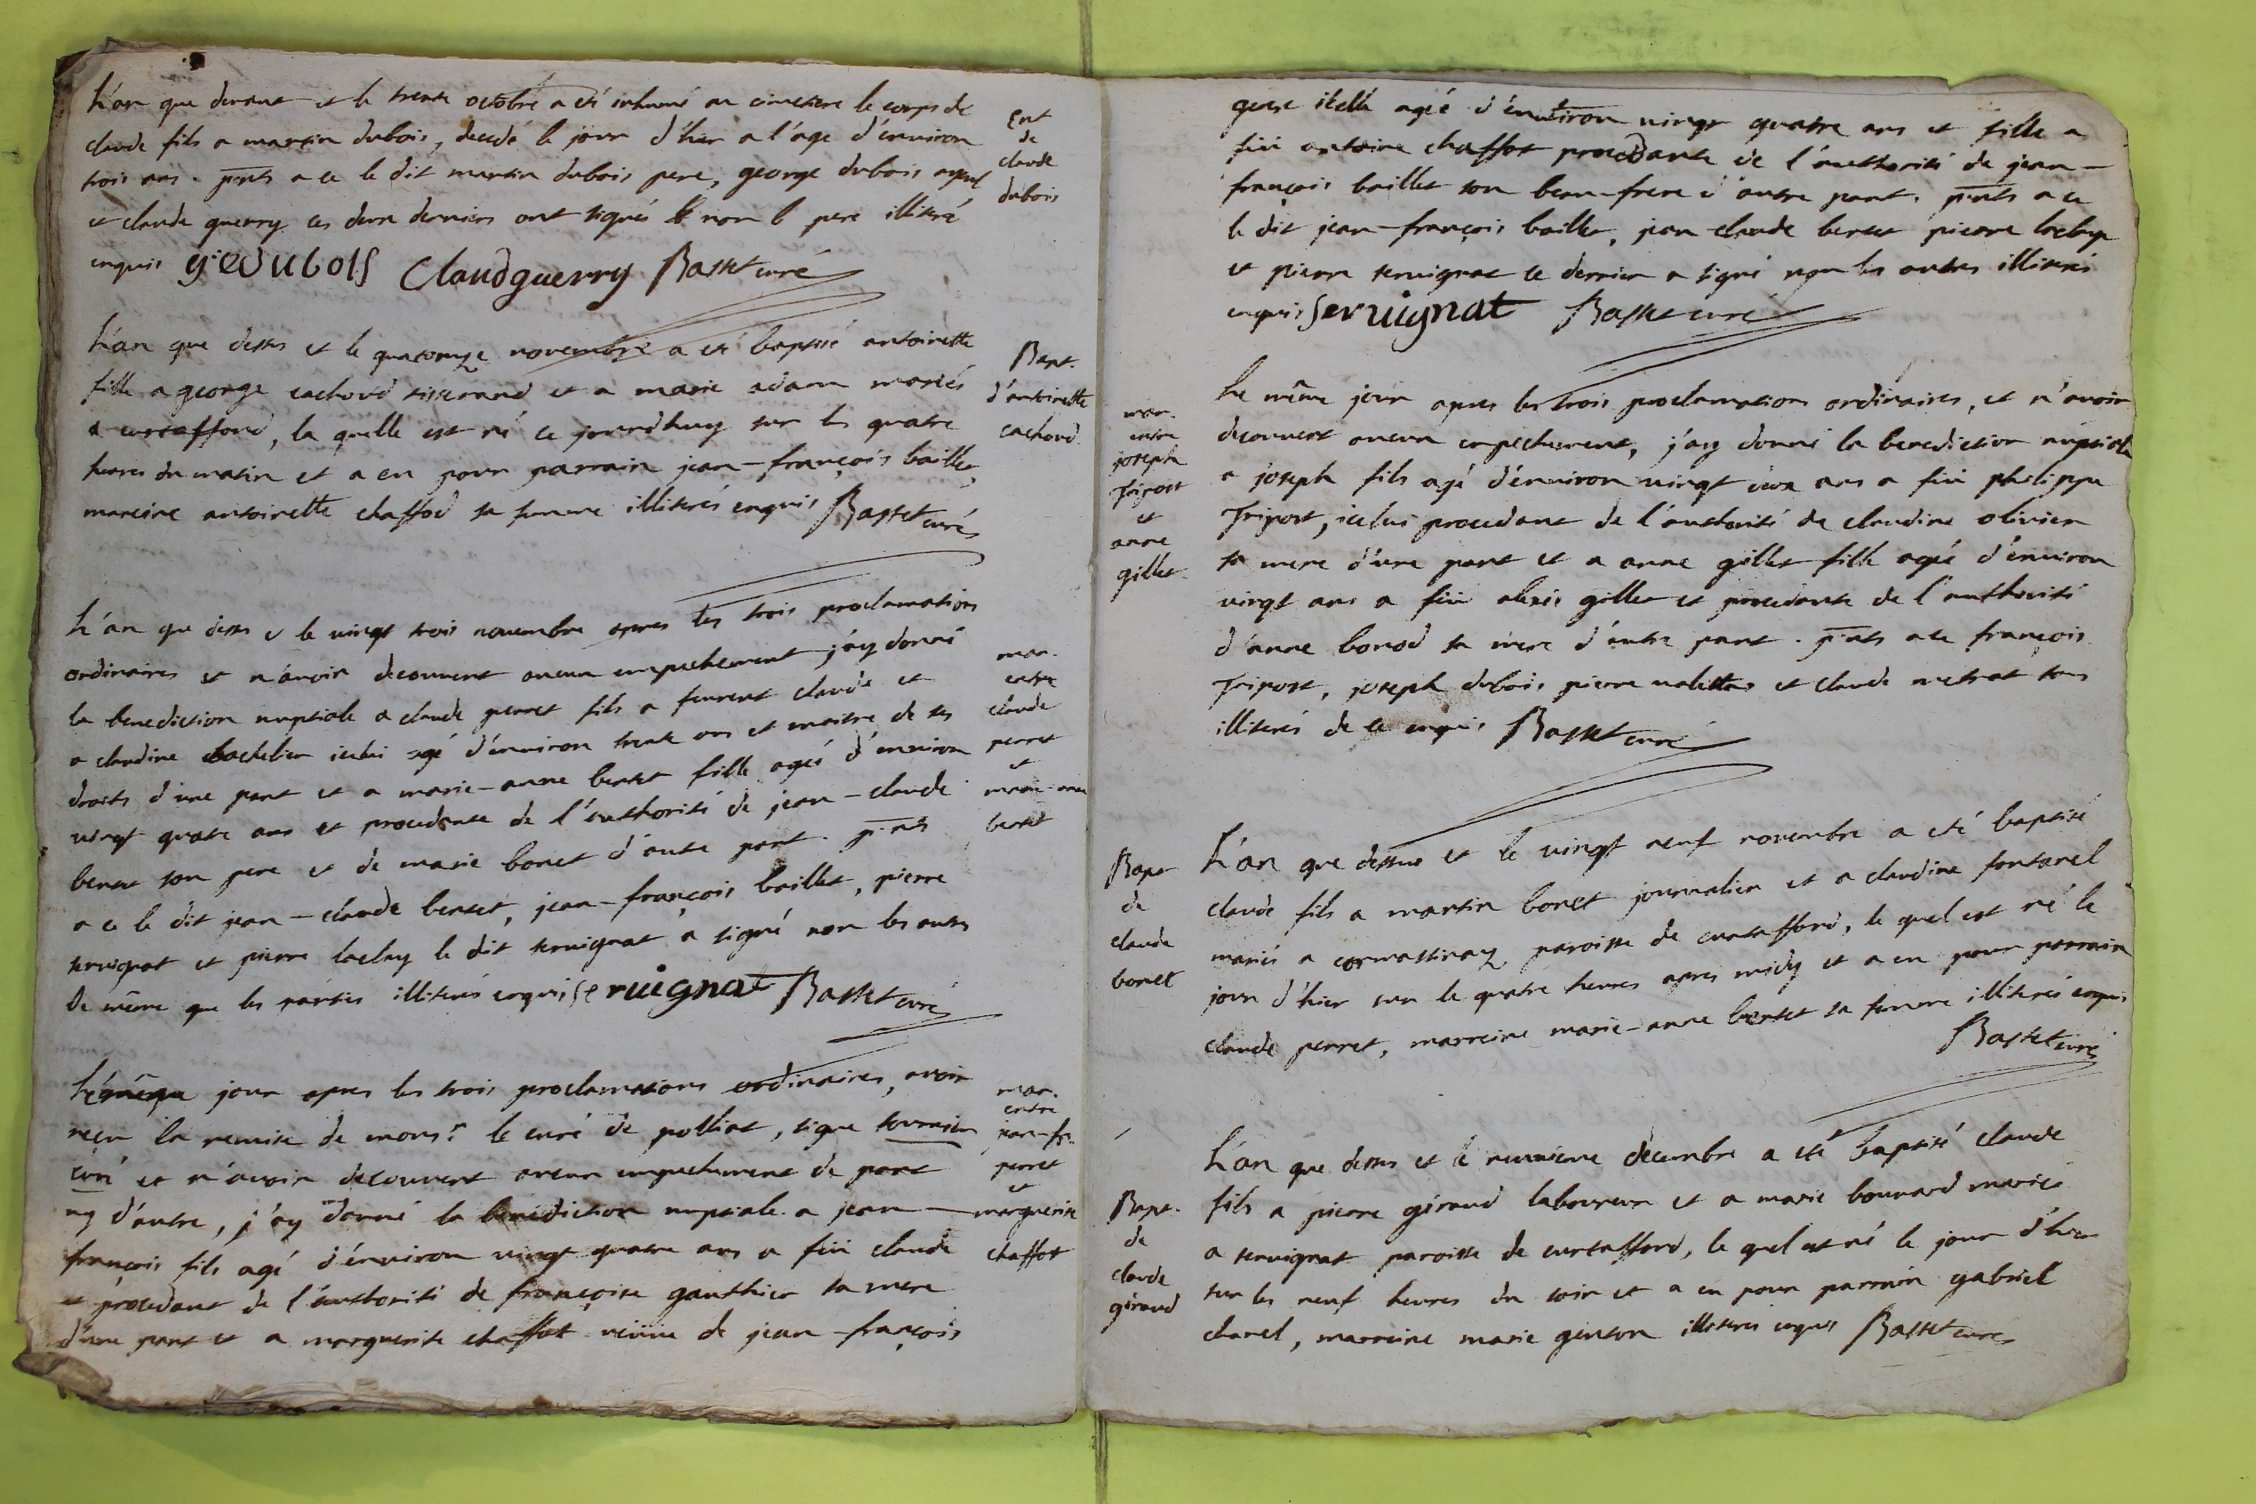 L'an que devant et le trente octobre a été inhumé au cimetiere le corps de
claude fils a martin dubois, decedé le jour d'hier a l'age d'environ
trois ans. pnts a ce le dit martin dubois pere, george dubois
et claude guerry ces deux derniers ont signés non le pere illiteré
enquis dubois Claud guerry Basset curé
Ent
de
claude
dubois
L'an que dessus et le quatorze novembre a été baptisé antoinette
fille a george cachoud tisserand et a marie adam mariés
a curtaffond, la quelle est né ce jourdhuy sur les quatre
heures du matin et a eu pour parrain jean-françois baillet,
mareine antoinette chaffod sa femme illiterés enquis Basset curé
Bapt.
d'antoinette
cachoud
L'an que dessus et le vingt trois novembre apres les trois proclamations
ordinaires et n'avoir decouvert aucun empechement j'ay donné
la benediction nuptiale a claude perret fils a feurent claude et
a claudine bachelier icelui agé d'environ trente ans et maitre de ses
droits d'une part et a marie-anne berset fille agée d'environ
vingt quatre ans et procedante de l'authorité de jean-claude
berset son pere et de marie bonet d'autre part. pnts
a ce le dit jean-claude berset, jean-françois baillet, pierre
servignat et pierre laclay le dit servignat a signé non les autres
de même que les parties illiterés enquis servignat Basset curé
mar.
entre
claude
perret
et
marie-anne
berset
Le même jour apres les trois proclamations ordinaires, avoir
reçu la remise de monsr. le curé de polliat, signe
curé et n'avoir decouvert aucun empechement de part
ny d'autre, j'ay donné la benediction nuptiale a jean-
françois fils agé d'environ vingt quatre ans a feu claude
et procedant de l'authorité de françoise gauthier sa mere
d'une part et a marguerite chaffot veuve de jean-françois
mar.
entre
jean-fr.
perret
et
marguerite
chaffot
icelle agée d'environ vingt quatre ans et fille a
feu antoine chaffot procedante de l'authorité de jean-
françois baillet son beau-frere d'autre part. pnts a ce
le dit jean-françois baillet, jean-claude berset pierre laclay
et pierre servignat ce dernier a signé non les autres illiterés
enquis servignat Basset curé
Le même jour apres les trois proclamations ordinaires, et n'avoir
decouvert aucun empechement, j'ay donné la benediction nuptiale
a joseph fils agé d'environ vingt deux ans a feu philippe
Tripost, icelui procedant de l'authorité de claudine olivier
sa mere d'une part et a anne gillet fille agée d'environ
vingt ans a feu alexis gillet et procedante de l'authorité
d'anne bonod sa mere d'autre part. pnts a ce françois
Tripost, joseph dubois pierre et claude metrat tous
illiterés de ce enquis Basset curé
mar.
entre
joseph
Tripost
et
anne
gillet.
L'an que dessus et le vingt neuf novembre a été baptisé
claude fils a martin bonet journalier et a claudine fontanel
mariés a cormassinay paroisse de curtaffond, le quel est né le
jour d'hier sur le quatre heures apres midy et a eu pour parrain
claude perret, marreine marie-anne berset sa femme illiterés enquis
Basset curé
Bapt
de
claude
bonet
L'an que dessus et le neuvieme decembre a été baptisé claude
fils a pierre giraud laboureur et a marie bouvard mariés
a servignat paroisse de curtaffond, le quel est né le jour d'hier
sur les neuf heures du soir et a eu pour parrain gabriel
chanel, marreine marie genton illiterés enquis Basset curé
Bapt.
de
claude
giraud